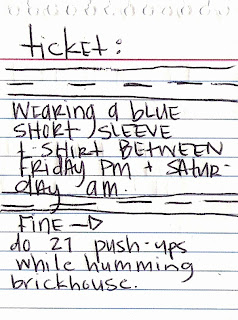 ticket:
WEARING a BLUE
SHORT SLEEVE
t-SHIRT BETWEEN
FRIDAY PM + SATUR-
day am.
FINE →
do 27 push-ups
while humming
brickhouse.